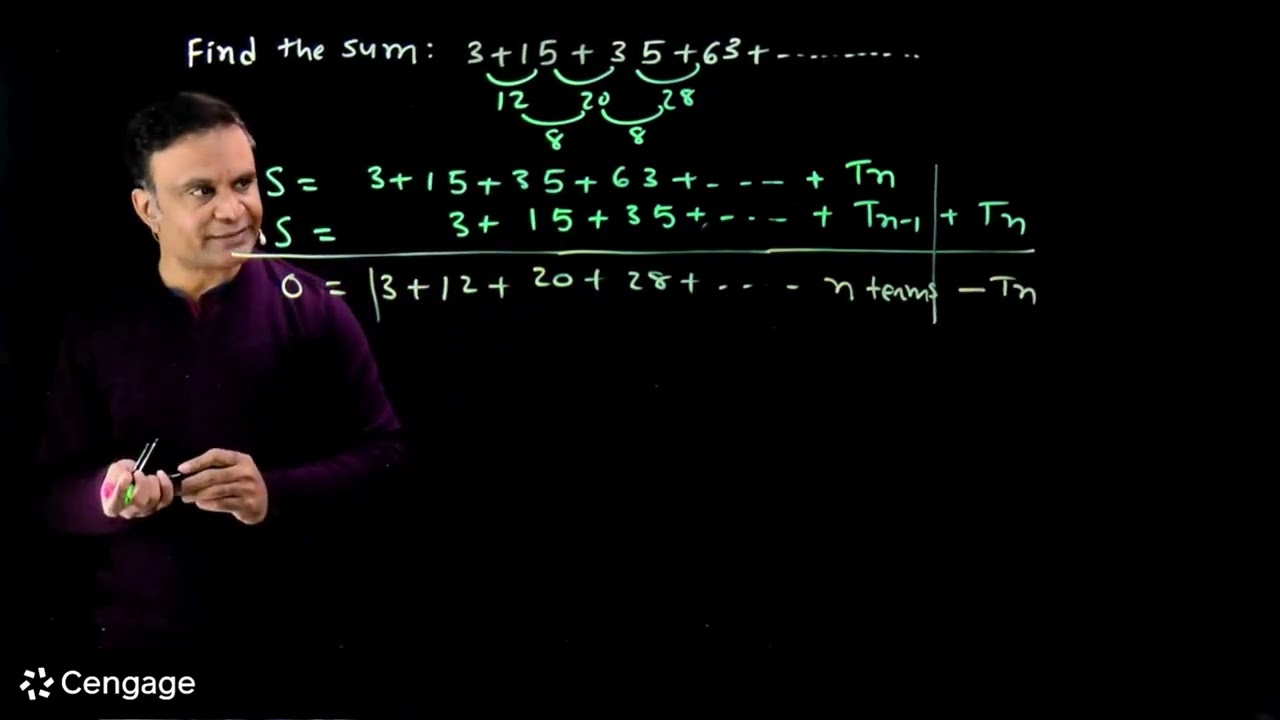 Find the sum: 3+15+35+63+...........
12 20 28
8 8
S = 3+15+35+63+.--- + Tn
S = 3+ 15+35+.--- + Tn-1 + Tn
0 = 3+12+ 20+ 28+ .... n terms - Tn
Cengage